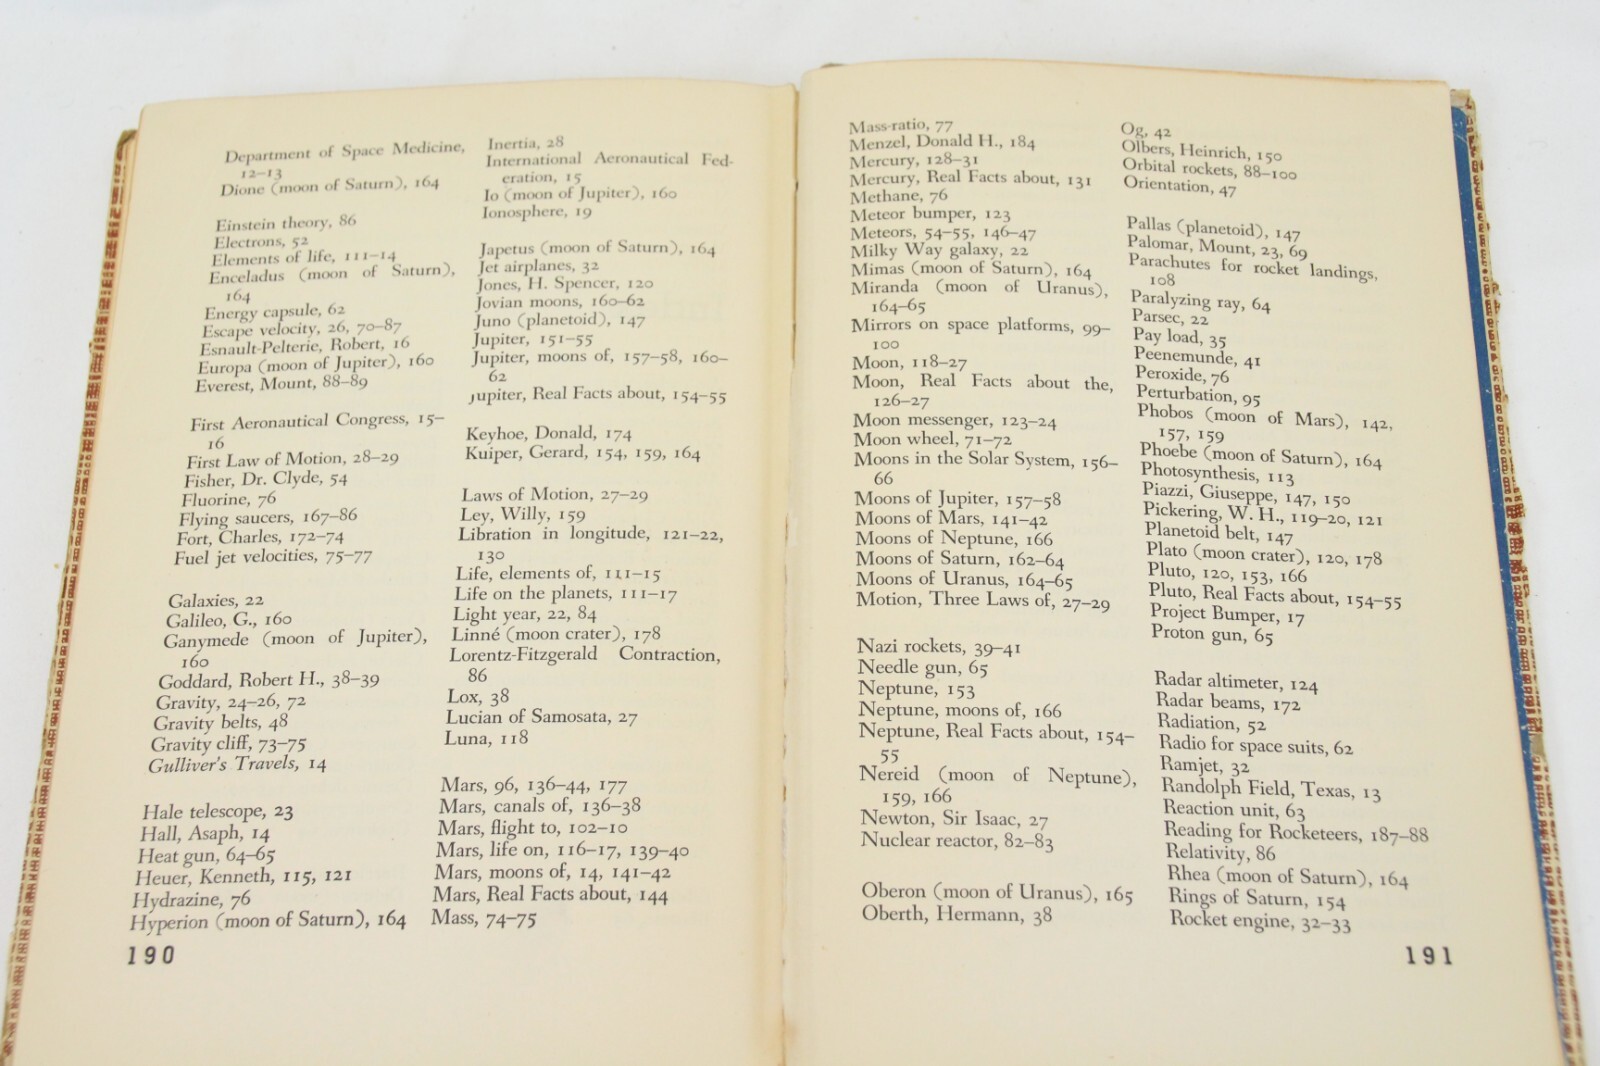 Department of Space Medicine,
12–13
Dione (moon of Saturn), 164
Einstein theory, 86
Electrons, 52
Elements of life, 111–14
Enceladus (moon of Saturn),
164
Energy capsule, 62
Escape velocity, 26, 70–87
Esnault-Pelterie, Robert, 16
Europa (moon of Jupiter), 160
Everest, Mount, 88–89
First Aeronautical Congress, 15–
16
First Law of Motion, 28–29
Fisher, Dr. Clyde, 54
Fluorine, 76
Flying saucers, 167–86
Fort, Charles, 172–74
Fuel jet velocities, 75–77
Galaxies, 22
Galileo, G., 160
Ganymede (moon of Jupiter),
160
Goddard, Robert H., 38–39
Gravity, 24–26, 72
Gravity belts, 48
Gravity cliff, 73–75
Gulliver's Travels, 14
Hale telescope, 23
Hall, Asaph, 14
Heat gun, 64–65
Heuer, Kenneth, 115, 121
Hydrazine, 76
Hyperion (moon of Saturn), 164
190
Inertia, 28
International Aeronautical Fed-
eration, 15
Io (moon of Jupiter), 160
Ionosphere, 19
Japetus (moon of Saturn), 164
Jet airplanes, 32
Jones, H. Spencer, 120
Jovian moons, 160–62
Juno (planetoid), 147
Jupiter, 151–55
Jupiter, moons of, 157–58, 160–
62
Jupiter, Real Facts about, 154–55
Keyhoe, Donald, 174
Kuiper, Gerard, 154, 159, 164
Laws of Motion, 27–29
Ley, Willy, 159
Libration in longitude, 121–22,
130
Life, elements of, 111–15
Life on the planets, 111–17
Light year, 22, 84
Linné (moon crater), 178
Lorentz-Fitzgerald Contraction,
86
Lox, 38
Lucian of Samosata, 27
Luna, 118
Mars, 96, 136–44, 177
Mars, canals of, 136–38
Mars, flight to, 102–10
Mars, life on, 116–17, 139–40
Mars, moons of, 14, 141–42
Mars, Real Facts about, 144
Mass, 74–75
Mass-ratio, 77
Menzel, Donald H., 184
Mercury, 128–31
Mercury, Real Facts about, 131
Methane, 76
Meteor bumper, 123
Meteors, 54–55, 146–47
Milky Way galaxy, 22
Mimas (moon of Saturn), 164
Miranda (moon of Uranus),
164–65
Mirrors on space platforms, 99–
100
Moon, 118–27
Moon, Real Facts about the,
126–27
Moon messenger, 123–24
Moon wheel, 71–72
Moons in the Solar System, 156–
66
Moons of Jupiter, 157–58
Moons of Mars, 141–42
Moons of Neptune, 166
Moons of Saturn, 162–64
Moons of Uranus, 164–65
Motion, Three Laws of, 27–29
Nazi rockets, 39–41
Needle gun, 65
Neptune, 153
Neptune, moons of, 166
Neptune, Real Facts about, 154–
55
Nereid (moon of Neptune),
159, 166
Newton, Sir Isaac, 27
Nuclear reactor, 82–83
Oberon (moon of Uranus), 165
Oberth, Hermann, 38
Og, 42
Olbers, Heinrich, 150
Orbital rockets, 88–100
Orientation, 47
Pallas (planetoid), 147
Palomar, Mount, 23, 69
Parachutes for rocket landings,
108
Paralyzing ray, 64
Parsec, 22
Pay load, 35
Peenemunde, 41
Peroxide, 76
Perturbation, 95
Phobos (moon of Mars), 142,
157, 159
Phoebe (moon of Saturn), 164
Photosynthesis, 113
Piazzi, Giuseppe, 147, 150
Pickering, W. H., 119–20, 121
Planetoid belt, 147
Plato (moon crater), 120, 178
Pluto, 120, 153, 166
Pluto, Real Facts about, 154–55
Project Bumper, 17
Proton gun, 65
Radar altimeter, 124
Radar beams, 172
Radiation, 52
Radio for space suits, 62
Ramjet, 32
Randolph Field, Texas, 13
Reaction unit, 63
Reading for Rocketeers, 187–88
Relativity, 86
Rhea (moon of Saturn), 164
Rings of Saturn, 154
Rocket engine, 32–33
191